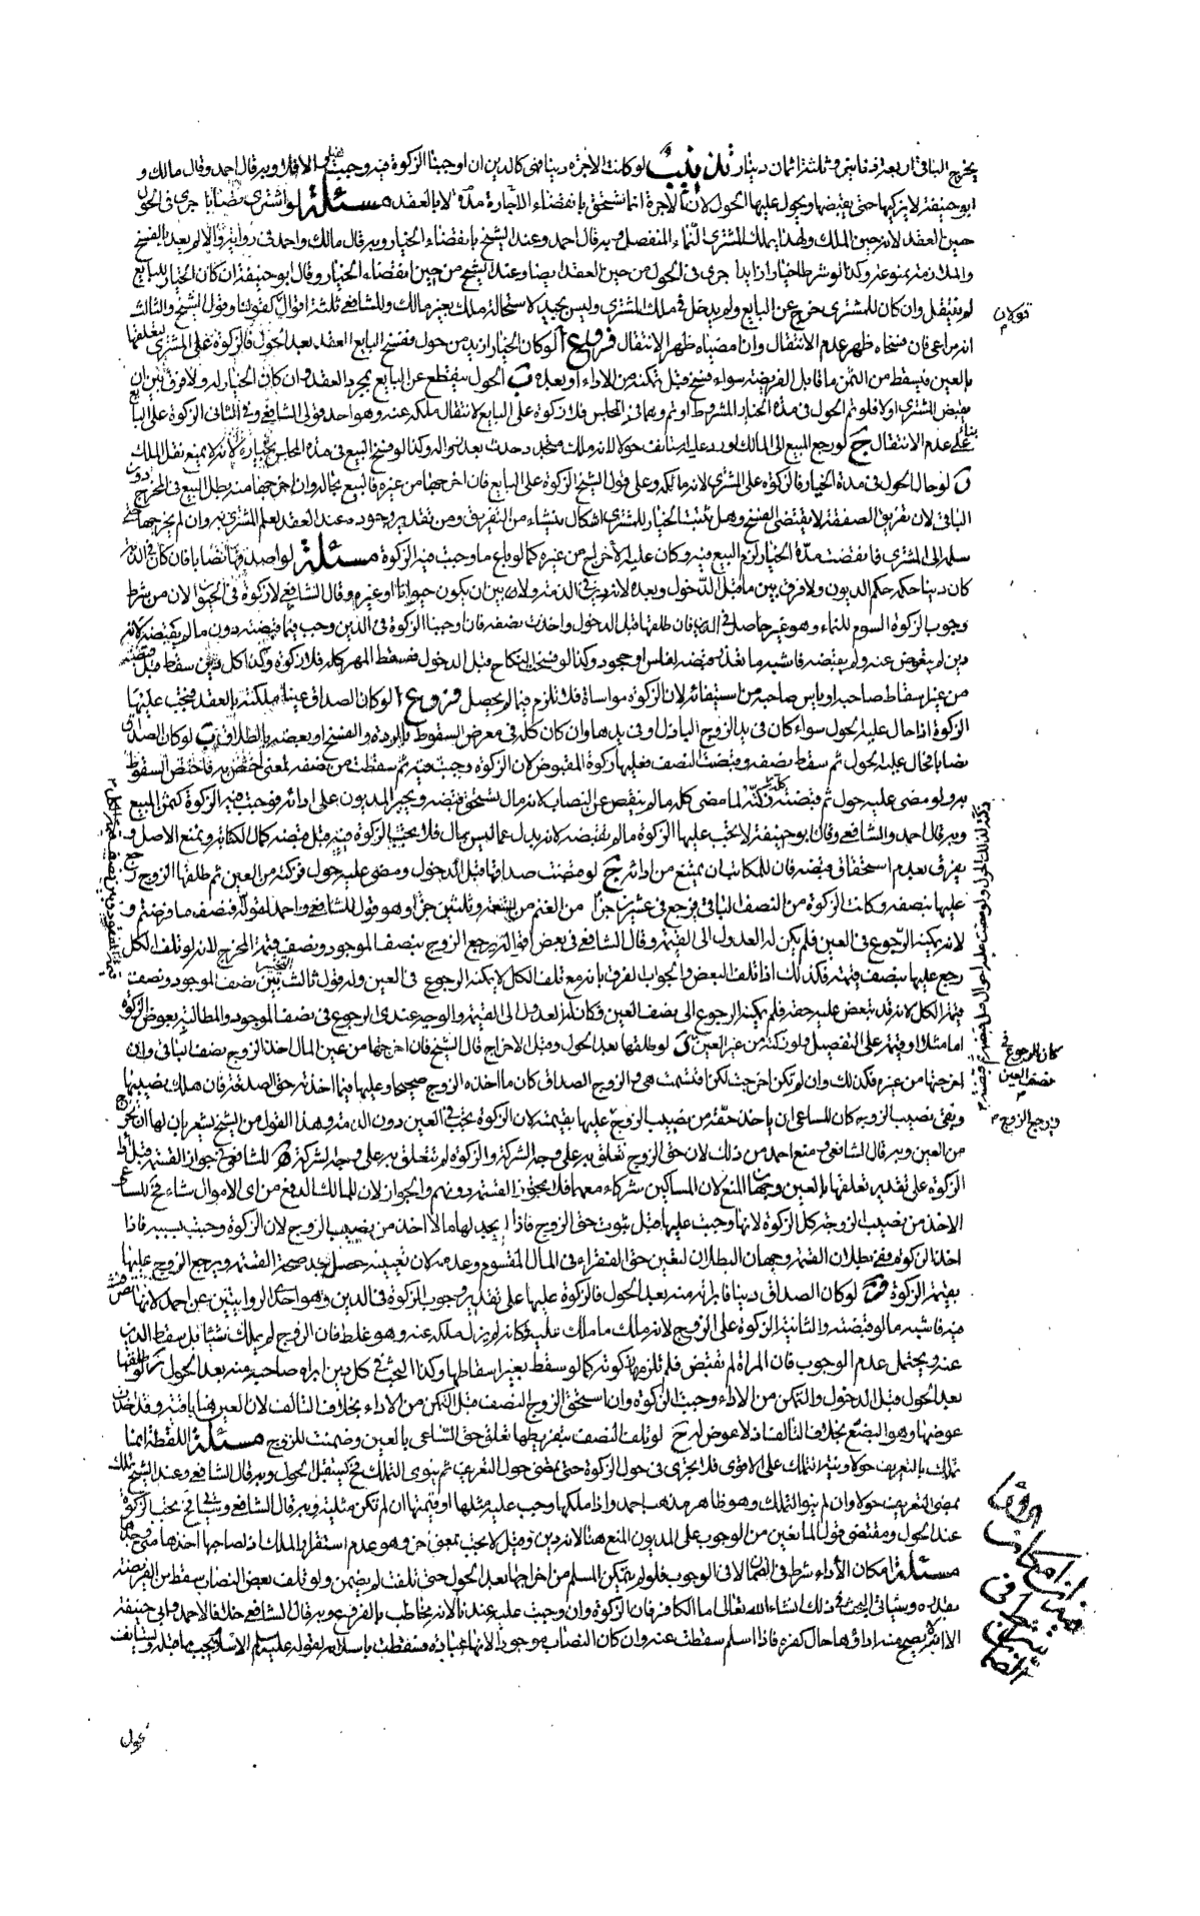 يخرج الباقى اربعة دنانير وثلثة اثمان دينار تذنيب لو كانت الاجرة دينا فهى كالدين ان اوجبنا الزكوة فيه وجبت والا فلا وبه قال احمد وقال مالك و
ابو حنيفة لا يزكيها حتى يقبضها ويحول عليها الحول لان الاجرة انما تستحق بانقضاء الاجارة مدة لا بالعقد مسئلة لو اشترى نصابا جرى فى الحول
حين العقد لانه حين الملك ولهذا يملك المشترى النماء المنفصل وبه قال احمد وعند الشيخ بانقضاء الخيار وبه قال مالك واحمد فى رواية والا لم يعد بالفسخ
والملازمة ممنوعة وكذا لو شرطا خيارا زايدا جرى فى الحول من حين العقد ايضا وعند الشيخ من حين انقضاء الخيار وقال ابو حنيفة ان كان الخيار للبايع
لم ينتقل وان كان للمشترى خرج عن البايع ولم يدخل فى ملك المشترى وليس بجيد لاستحالة ملك بغير مالك وللشافعى ثلثة اقوال كقولنا وقول الشيخ والثالث
انه مراعى فان فسخاه ظهر عدم الانتقال وان امضياه ظهر الانتقال فروع ا لو كان الخيار ازيد من حول ففسخ البايع العقد بعد الحول فالزكوة على المشترى لتعلقها
بالعين فيسقط من الثمن ما قابل الفريضة سواء فسخ قبل تمكنه من الاداء او بعده ب الحول ينقطع عن البايع بمجرد العقد وان كان الخيار له ولا فرق بين ان
يقبض المشترى او لا فلو تم الحول فى مدة الخيار المشروط او تم وهما فى المجلس فلا زكوة على البايع لانتقال ملكه عنه وهو احد قولى الشافعى وفى الثانى الزكوة على البايع
بناء على عدم الانتقال ج لو رجع المبيع الى المالك او رد عليه استانف حولا لانه ملك متجدد حدث بعد زواله وكذا لو فسخ البيع فى مدة المجلس بخياره لانه لا يمنع نقل الملك
د لو حال الحول فى مدة الخيار فالزكوة على المشترى لانه مالكه وعلى قول الشيخ الزكوة على البايع فان اخرجها من غيره فالبيع بحاله وان اخرجها منه بطل البيع فى المخرج دون
الباقى لان تفريق الصفقة لا يقتضى الفسخ وهل يثبت الخيار للمشترى اشكال ينشاء من التفريق ومن تقدير وجوده عند العقد لعلم المشترى به وان لم يخرجها حتى
سلمه الى المشترى فانقضت مدة الخيار لزم البيع فيه وكان عليه الاخراج من غيره كما لو باع ما وجبت فيه الزكوة مسئلة لو اصدقها نصابا فان كان فى الذمة
كان دينا حكمه حكم الديون ولا فرق بين ما قبل الدخول وبعده لانه دين فى الذمة ولا بين ان يكون حيوانا او غيره وقال الشافعى لا زكوة فى الحيوان لان من شرط
وجوب الزكوة السوم للنماء وهو غير حاصل فى الدين فان طلقها قبل الدخول واخذت نصفه فان اوجبنا الزكوة فى الدين وجب فيما قبضته دون ما لم تقبضه لانه
دين لم يتعوض عنه ولم يقبضه فاشبه ما تعذر قبضه لفلس او جحود وكذا لو فسخت النكاح قبل الدخول فسقط المهر كله فلا زكوة وكذا كل دين سقط قبل قبضه
من غير اسقاط صاحبه او يأس صاحبه من استيفائه لان الزكوة مواساة فلا تلزم فيما لم يحصل فروع ا لو كان الصداق عينا ملكته بالعقد فتجب عليها
الزكوة اذا حال عليه الحول سواء كان فى يد الزوج الباذل او فى يدها وان كان كله فى معرض السقوط بالردة والفسخ او بعضه بالطلاق ب لو كان الصداق
نصابا فحال عليه الحول ثم سقط نصفه وقبضت النصف فعليها زكوة المقبوض لان الزكوة وجبت فيه ثم سقطت من نصفه لمعنى اختص به فاختص السقوط
به ولو مضى عليه حول ثم قبضته كله زكته لما مضى كله ما لم ينقص عن النصاب لانه مال تستحق قبضه ويجبر المديون على ادائه فوجبت فيه الزكوة كثمن المبيع
وبه قال احمد والشافعى وقال ابو حنيفة لا تجب عليها الزكوة ما لم تقبضه لانه بدل عما ليس بمال فلا تجب الزكوة فيه قبل قبضه كمال الكتابة ويمنع الاصل و
يفرق بعدم استحقاق قبضه فان للمكاتب ان يمتنع من ادائه ج لو قبضت صداقها قبل الدخول ومضى عليه حول فزكته من العين ثم طلقها الزوج رجع
عليها بنصفه وكانت الزكوة من النصف الباقى فيرجع فى عشرين جزءا من الغنم من تسعة وثلثين جزءا وهو قول للشافعى واحمد لقوله فنصف ما فرضتم و
لانه يمكنه الرجوع فى العين فلم يكن له العدول الى القيمة وقال الشافعى فى بعض اقواله يرجع الزوج بنصف الموجود ونصف قيمة المخرج لانه لو تلف الكل
رجع عليها بنصف قيمته فكذلك اذا تلف البعض والجواب الفرق بانه مع تلف الكل لا يمكنه الرجوع فى العين وله قول ثالث التخيير بين نصف الموجود ونصف
قيمة الكل لانه قد تبعض عليه حقه فلم يمكنه الرجوع الى نصف العين فكان له العدول الى القيمة والوجه عندى الرجوع فى نصف الموجود والمطالبة بعوض الزكوة
اما مثلا او قيمة على التفصيل ولو زكته من غير العين د لو طلقها بعد الحول وقبل الاخراج قال الشيخ فان اخرجتها من عين المال اخذ الزوج نصف الباقى وان
اخرجتها من غيره فكذلك وان لم تكن اخرجت لكن اقتسمت هى والزوج الصداق كان ما اخذه الزوج صحيحا وعليها فيما اخذته حق الصدقة فان هلك نصيبها
وبقى نصيب الزوج كان للساعى ان ياخذ حقه من نصيب الزوج عليها بقيمته لان الزكوة تجب فى العين دون الذمة وهذا القول من الشيخ يشعر بان لها ان تخرج
من العين وبه قال الشافعى ومنع احمد من ذلك لان حق الزوج تعلق به على وجه الشركة والزكوة لم تتعلق به على وجه الشركة ه للشافعى فى جواز القسمة قبل اداء
الزكوة على تقدير تعلقها بالعين وجهان المنع لان المساكين شركاء معهما فلا يجوز القسمة دونهم والجواز لان للمالك الدفع من اى الاموال شاء فحينئذ للساعى
الاخذ من نصيب الزوجة كل الزكوة لانها وجبت عليها قبل ثبوت حق الزوج فاذا لم يجد لها مالا اخذ من نصيب الزوج لان الزكوة وجبت بسببه فاذا
اخذ الزكوة ففى بطلان القسمة وجهان البطلان لتعين حق الفقراء فى المال المقسوم وعدمه لان تعيينه حصل بعد صحة القسمة ويرجع الزوج عليها
بقيمة الزكوة و لو كان الصداق دينا فابراته منه بعد الحول فالزكوة عليها على تقدير وجوب الزكوة فى الدين وهو احدى الروايتين عن احمد لانها تصرفت
فيه فاشبه ما لو قبضته والثانية الزكوة على الزوج لانه ملك ما ملك عليه فكانه لم يزل ملكه عنه وهو غلط فان الزوج لم يملك شيئا بل سقط الدين
عنه ويحتمل عدم الوجوب فان المراة لم تقبض فلم تلزمها زكوته كما لو سقط بغير اسقاطها وكذا البحث فى كل دين ابراه صاحبه منه بعد الحول ز لو طلقها
بعد الحول قبل الدخول والتمكن من الاداء وجبت الزكوة وان استحق الزوج النصف قبل التمكن من الاداء بخلاف التالف لان العين هنا باقية وقد اخذت
عوضها وهو البضع بخلاف التالف اذ لا عوض له ح لو تلف النصف بتفريطها تعلق حق الساعى بالعين وضمنت للزوج مسئلة اللقطة انما
تملك بالتعريف حولا ونية التملك على الاقوى فلا يجرى فى حول الزكوة حتى يمضى حول التعريف ثم ينوى التملك فح يستقبل الحول وبه قال الشافعى وعند الشيخ تملك
بمضى التعريف حولا وان لم ينو التملك وهو ظاهر مذهب احمد واذا ملكها وجب عليه مثلها او قيمتها ان لم تكن مثلية وبه قال الشافعى وح تجب الزكوة
عند الحول ومقتضى قول المانعين من الوجوب على المديون المنع هنا لانه دين وقيل لا تجب بمعنى اخر وهو عدم استقرار الملك اذ لصاحبها اخذها متى وجدها
مسئلة امكان الاداء شرط فى الضمان لا فى الوجوب فلو لم يتمكن المسلم من اخراجها بعد الحول حتى تلفت لم يضمن ولو تلف بعض النصاب سقط من الفريضة
بقدره وسياتى البحث فى ذلك انشاء الله تعالى اما الكافر فان الزكوة وان وجبت عليه عندنا لانه مخاطب بالفروع وبه قال الشافعى خلافا لاحمد وابى حنيفة
الا انه لا يصح منه اداؤها حال كفره فاذا اسلم سقطت عنه وان كان النصاب موجودا لانها عبادة فسقطت باسلامه لقوله عليه السلم الاسلام يجب ما قبله ويستانف
قولان
كان الرجوع فى
نصف العين
ويرجع الزوج
فى ان امكان الاداء
شرط فى
الضمان
حول